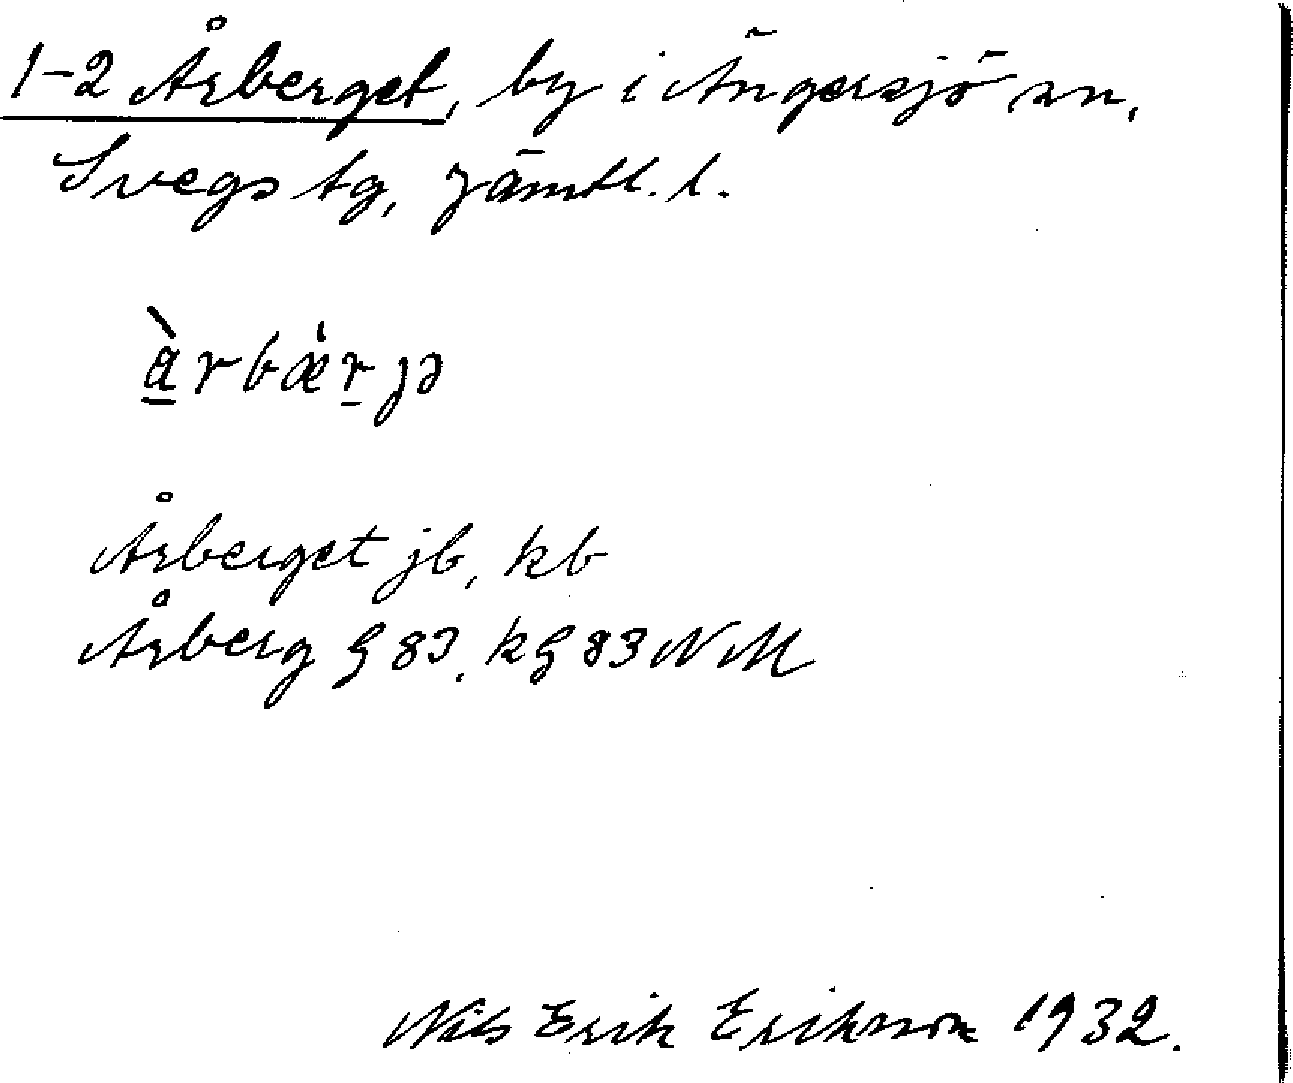 1-2 Årberget, by i Ängersjö sn,
Svegs tg, Jämtl. l.
àrbæ̀rjə
Årberget jb, kb
Årberg G 83, kG 83 NM
Nils Erik Erikson 1932.